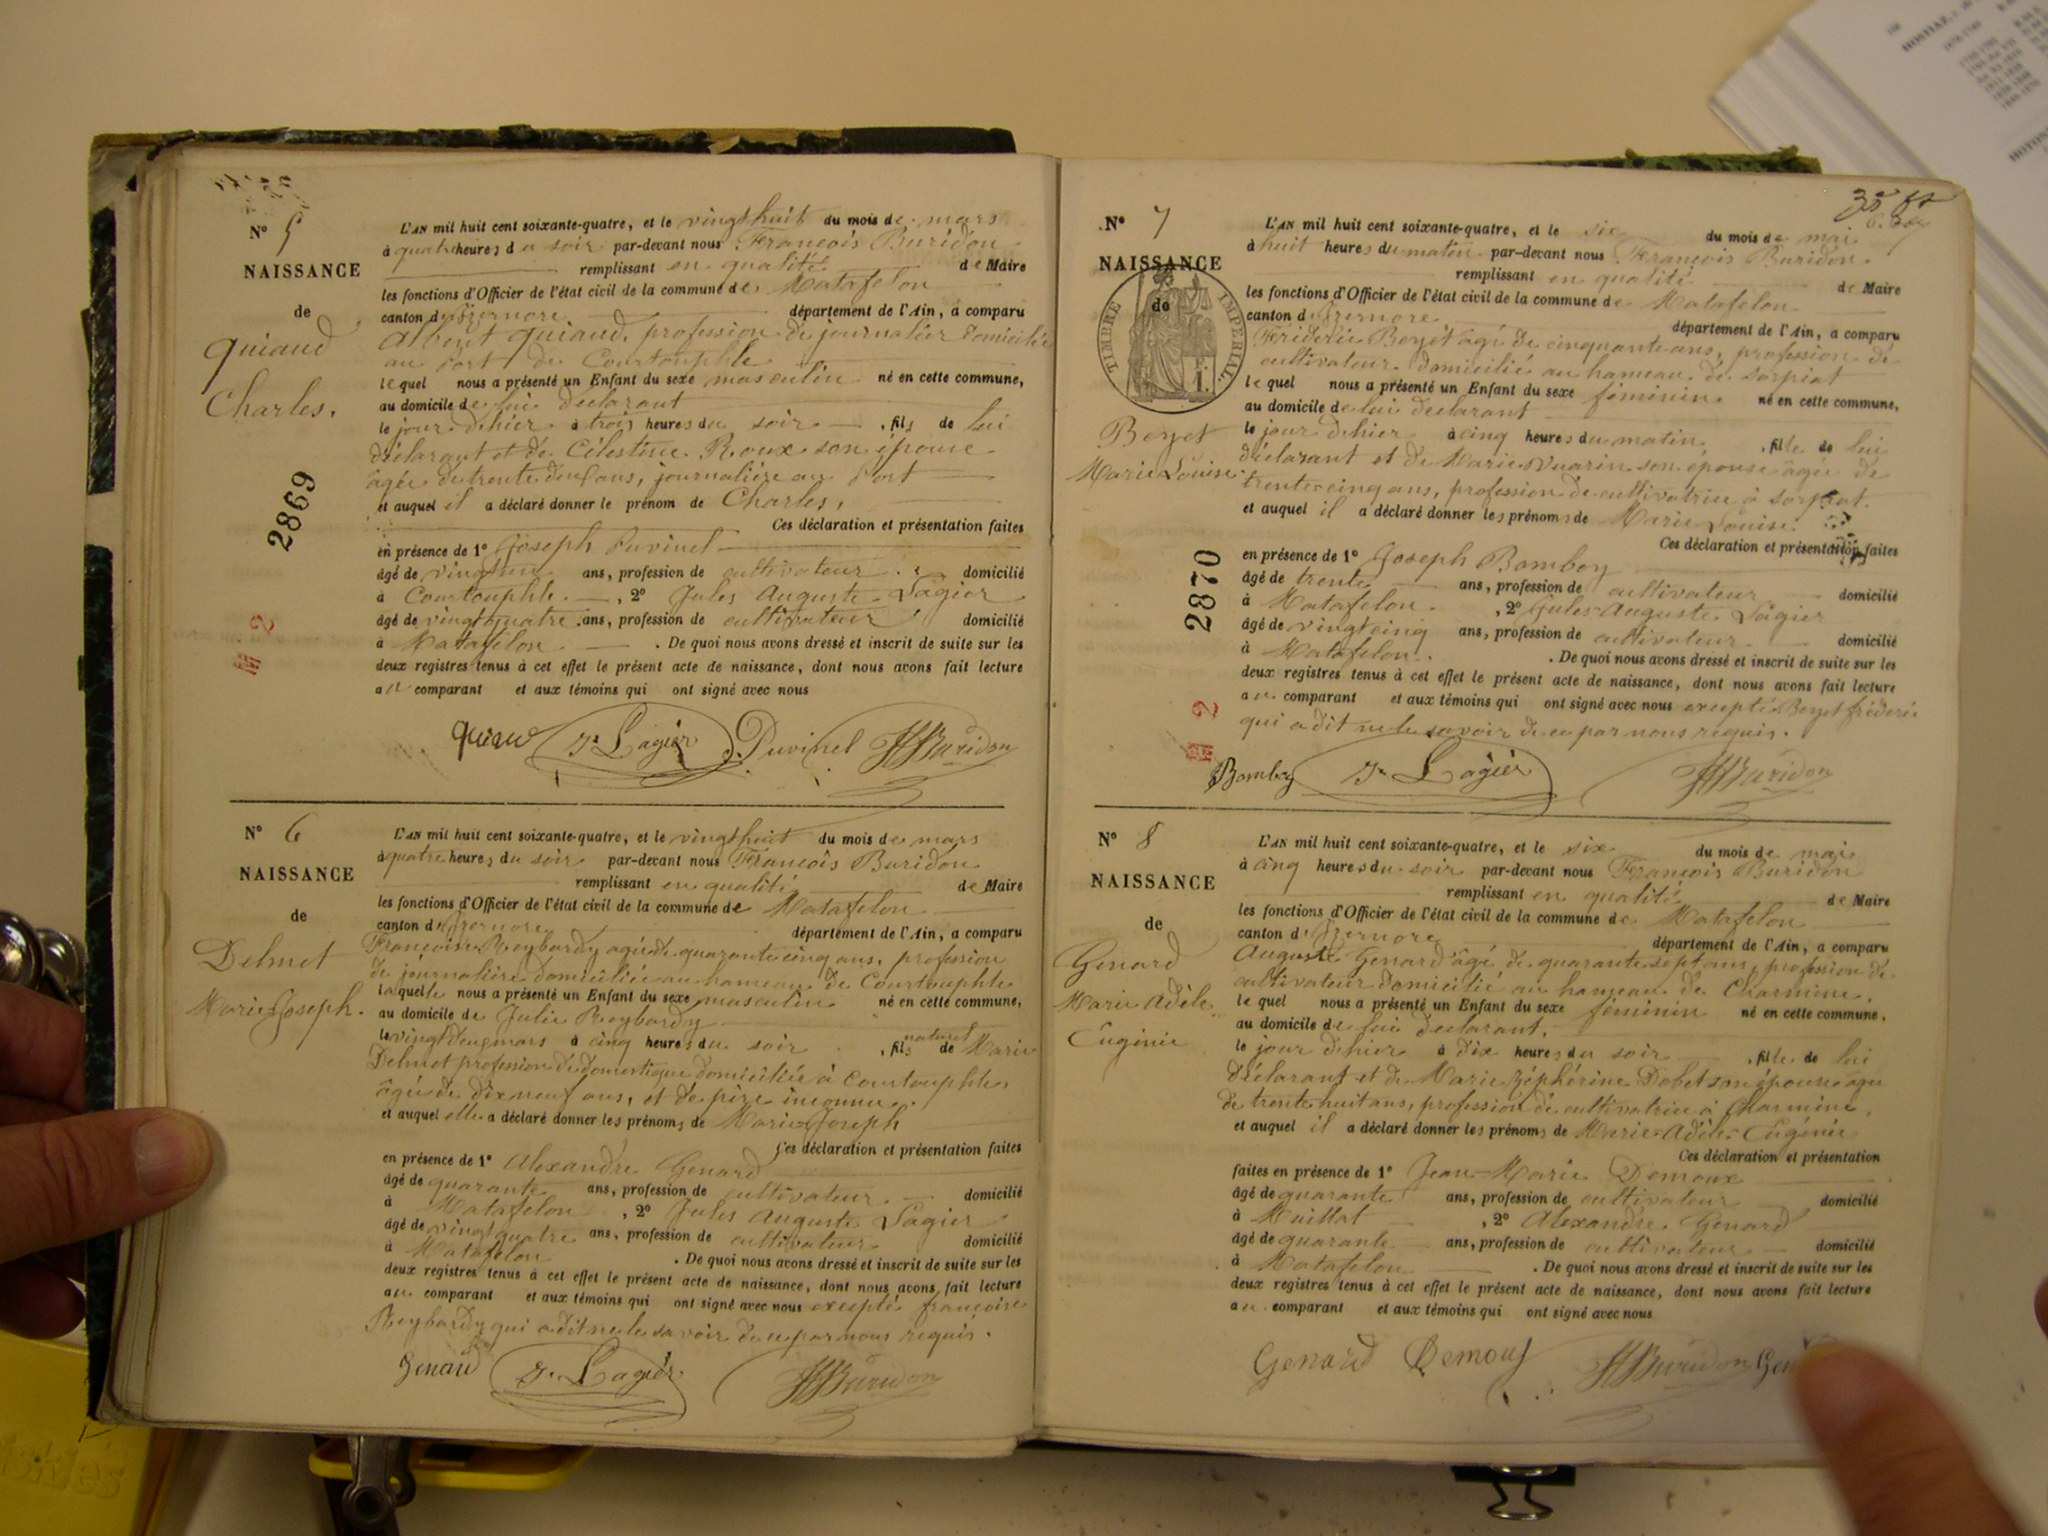 N° 5
NAISSANCE
de
Quiaud
Charles.
2869
2
L'AN mil huit cent soixante-quatre, et le vingt huit du mois de mars
à quatre heures du soir par-devant nous François Buridon
remplissant en qualité de Maire
les fonctions d'Officier de l'état civil de la commune de Matafelon
canton d'Izernore département de l'Ain, a comparu
Albert Quiaud, profession de journalier domicilié
au Port de Courtouphle
lequel nous a présenté un Enfant du sexe masculin né en cette commune,
au domicile de lui déclarant
le jour d'hier à trois heures du soir, fils de lui
déclarant et de Célestine Roux son épouse
âgée de trente deux ans, journalière au Port
et auquel il a déclaré donner le prénom de Charles,
Ces déclaration et présentation faites
en présence de 1° Joseph Duvinel
âgé de ans, profession de cultivateur domicilié
à Courtouphle, 2° Jules Auguste Lagier
âgé de vingt quatre ans, profession de cultivateur domicilié
à Matafelon. De quoi nous avons dressé et inscrit de suite sur les
deux registres tenus à cet effet le présent acte de naissance, dont nous avons fait lecture
au comparant et aux témoins qui ont signé avec nous
Quiaud Js Lagier Duvinel Buridon
N° 6
NAISSANCE
de
Delmet
Marie Joseph.
L'AN mil huit cent soixante-quatre, et le vingt huit du mois de mars
à quatre heures du soir par-devant nous François Buridon
remplissant en qualité de Maire
les fonctions d'Officier de l'état civil de la commune de Matafelon
canton d'Izernore département de l'Ain, a comparu
Françoise Reybardy agée de quarante cinq ans, profession
de journalière domiciliée au hameau de Courtouphle
laquelle nous a présenté un Enfant du sexe masculin né en cette commune,
au domicile de Julie Reybardy
le vingt deux mars à cinq heures du soir, fils naturel de Marie
Delmet profession de domestique domiciliée à Courtouphle,
âgée de dix neuf ans, et de père inconnu.
et auquel elle a déclaré donner les prénoms de Marie Joseph
Ces déclaration et présentation faites
en présence de 1° Alexandre Genard
âgé de quarante ans, profession de cultivateur domicilié
à Matafelon, 2° Jules Auguste Lagier
âgé de vingt quatre ans, profession de cultivateur domicilié
à Matafelon. De quoi nous avons dressé et inscrit de suite sur les
deux registres tenus à cet effet le présent acte de naissance, dont nous avons fait lecture
au comparant et aux témoins qui ont signé avec nous excepté françoise
Reybardy qui a dit ne le savoir de ce par nous requis.
Genard Js Lagier Buridon
N° 7
NAISSANCE
de
TIMBRE IMPERIAL
Berget
Marie Louise.
2870
2
L'AN mil huit cent soixante-quatre, et le six du mois de mai
à huit heures du matin par-devant nous François Buridon.
remplissant en qualité de Maire
les fonctions d'Officier de l'état civil de la commune de Matafelon
canton d'Izernore département de l'Ain, a comparu
Fréderic Berget âgé de cinquante ans, profession de
cultivateur domicilié au hameau de Corpiat
lequel nous a présenté un Enfant du sexe féminin né en cette commune,
au domicile de lui déclarant
le jour d'hier à cinq heures du matin, fille de lui
déclarant et de Marie Nuarin son épouse âgée de
trente cinq ans, profession de cultivatrice à Corpiat.
et auquel il a déclaré donner les prénoms de Marie Louise.
Ces déclaration et présentation faites
en présence de 1° Joseph Bamboy
âgé de trente ans, profession de cultivateur domicilié
à Matafelon, 2° Jules Auguste Lagier
âgé de vingt cinq ans, profession de cultivateur domicilié
à Matafelon. De quoi nous avons dressé et inscrit de suite sur les
deux registres tenus à cet effet le présent acte de naissance, dont nous avons fait lecture
au comparant et aux témoins qui ont signé avec nous excepté Berget fréderic
qui a dit ne le savoir de ce par nous requis.
Bamboy Js Lagier Buridon
N° 8
NAISSANCE
de
Genard
Marie Adèle
Eugénie
L'AN mil huit cent soixante-quatre, et le six du mois de mai
à cinq heures du soir par-devant nous François Buridon
remplissant en qualité de Maire
les fonctions d'Officier de l'état civil de la commune de Matafelon
canton d'Izernore département de l'Ain, a comparu
Auguste Genard âgé de quarante sept ans, profession de
cultivateur domicilié au hameau de Charmine.
lequel nous a présenté un Enfant du sexe féminin né en cette commune,
au domicile de lui déclarant.
le jour d'hier à dix heures du soir, fille de lui
déclarant et de Marie Zéphérine Dobet son épouse âgée
de trente huit ans, profession de cultivatrice à Charmine,
et auquel il a déclaré donner les prénoms de Marie-Adèle-Eugénie
Ces déclaration et présentation
faites en présence de 1° Jean-Marie Demoux
âgé de quarante ans, profession de cultivateur domicilié
à Maillat, 2° Alexandre Genard
âgé de quarante ans, profession de cultivateur domicilié
à Matafelon. De quoi nous avons dressé et inscrit de suite sur les
deux registres tenus à cet effet le présent acte de naissance, dont nous avons fait lecture
au comparant et aux témoins qui ont signé avec nous
Genard Demoux Buridon